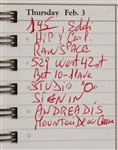 Thursday, Feb. 3
145
HIP &
RAW SPACE
529 West 42 st
Bet 10-11 Ave
STUDIO "O"
SIGN IN
ANDREADIS
MOUNTAIN DEW